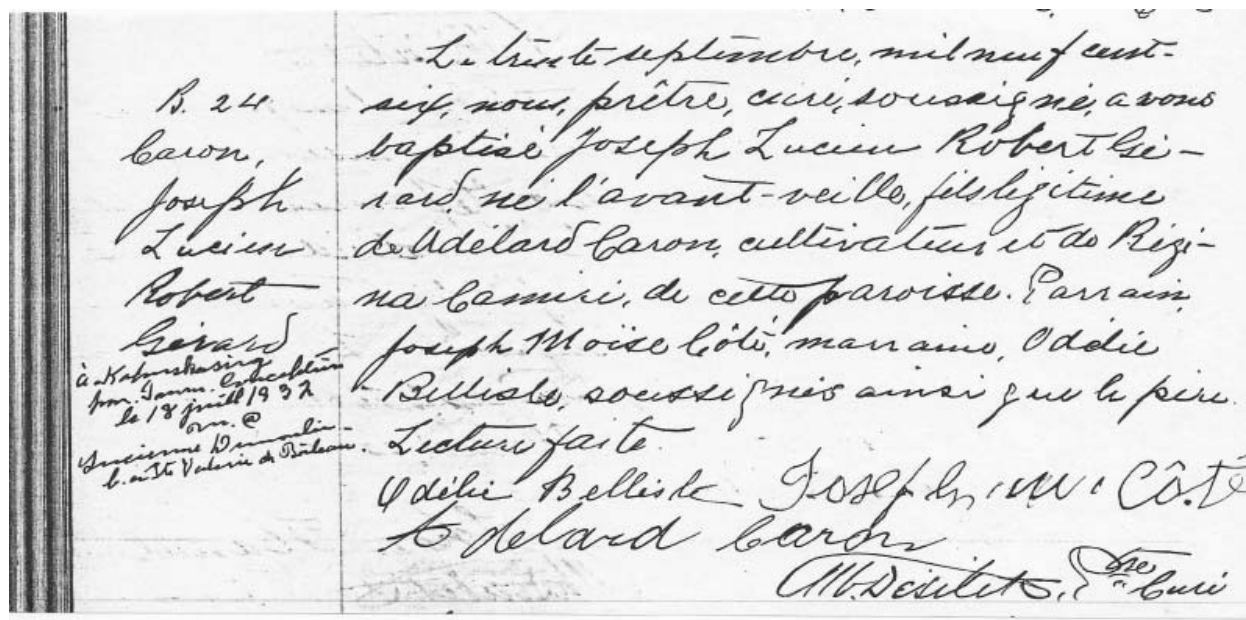 B. 24
Caron,
Joseph
Lucien
Robert
Gérard
à Kapuskasing
par. Imm. Conception
le 18 juill 1932
on. @
Lucienne Dumoulin
b. à Ste Valérie de Boileau.
Le trente septembre, mil neuf cent-
six, nous, prêtre, curé, soussigné, avons
baptisé Joseph Lucien Robert Gé-
rard né l'avant-veille, fils légitime
de Adélard Caron, cultivateur et de Régi-
na Camiré, de cette paroisse. Parrain,
Joseph Moïse Côté, marraine, Odélie
Bellisle, soussignés ainsi que le père.
Lecture faite.
Odélie Bellisle Joseph M. Côté
Adelard Caron
Désilets, Ptre Curé